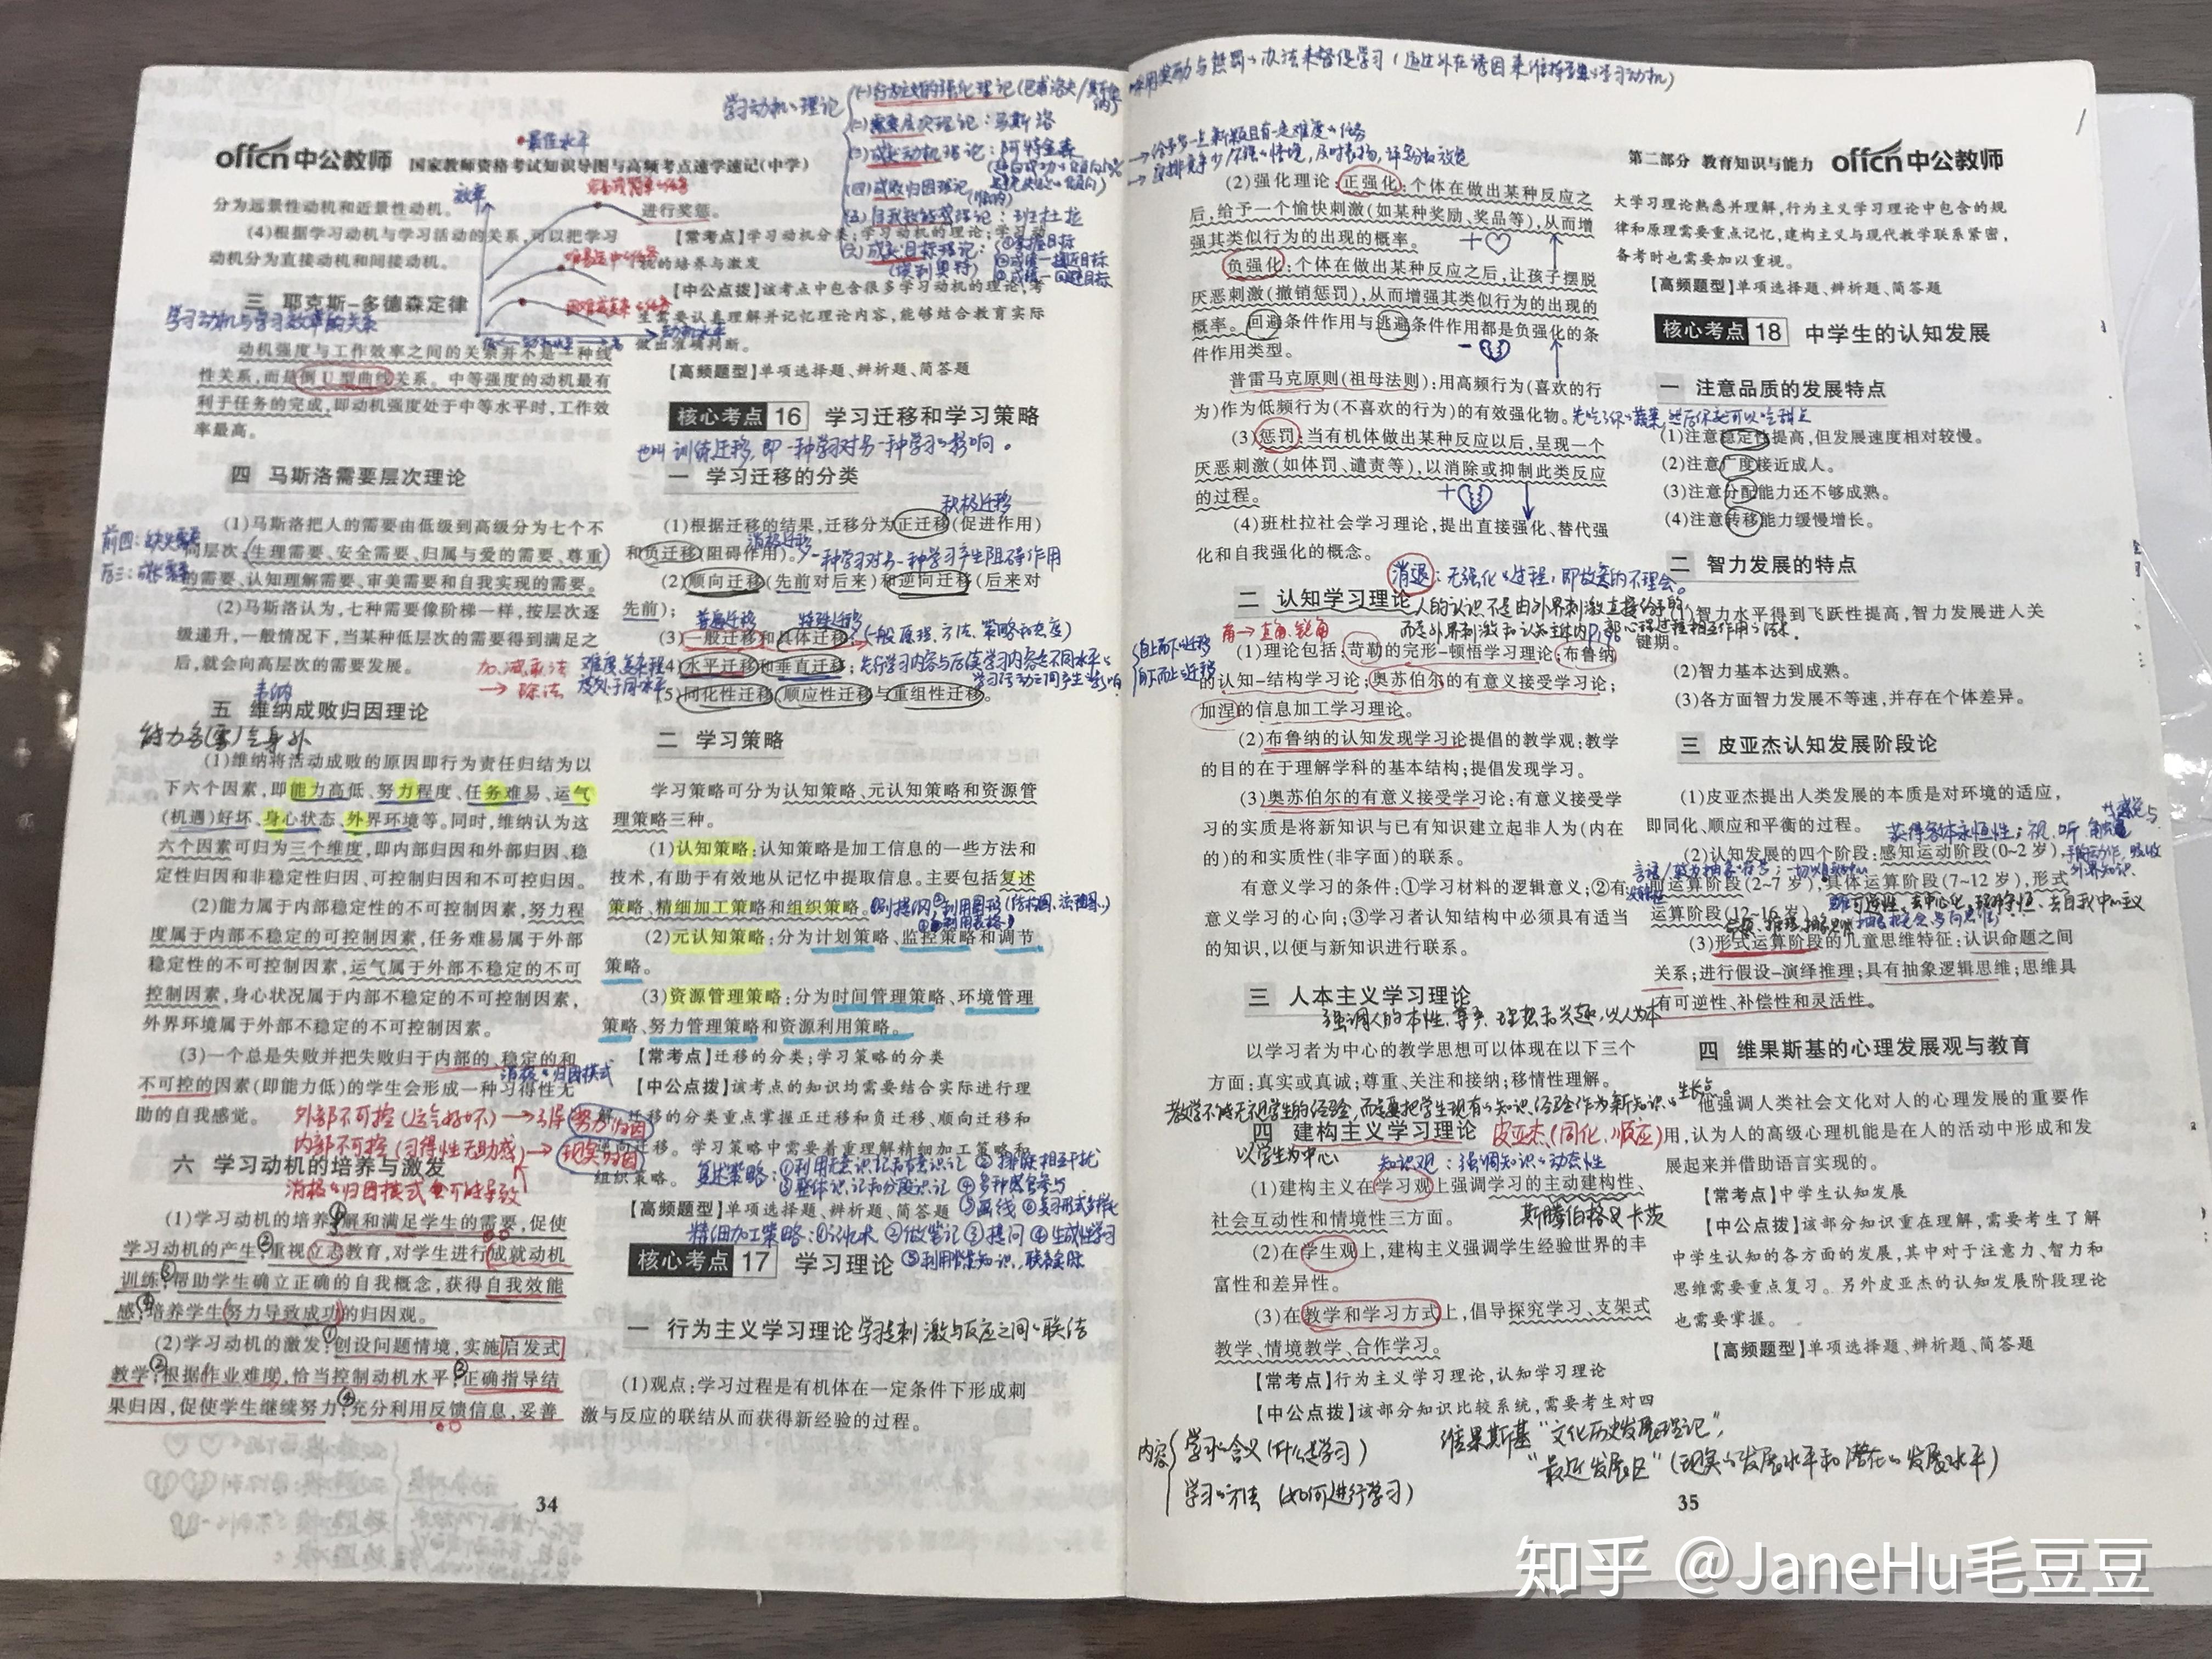 offcn中公教师 国家教师资格考试知识导图与高频考点速学速记(中学)
学习动机理论
(二)需要层次理论：马斯洛
(三)成就动机理论：阿特金森
(四)成败归因理论
(五)自我效能感理论：班杜拉
(六)成就目标理论：
最佳水平
效率
分为远景性动机和近景性动机。
(4)根据学习动机与学习活动的关系,可以把学习
动机分为直接动机和间接动机。
三 耶克斯-多德森定律
学习动机与学习效率的关系
动机强度与工作效率之间的关系并不是一种线
性关系,而是倒U型曲线关系。中等强度的动机最有
利于任务的完成,即动机强度处于中等水平时,工作效
率最高。
四 马斯洛需要层次理论
(1)马斯洛把人的需要由低级到高级分为七个不
同层次(生理需要、安全需要、归属与爱的需要、尊重
的需要、认知理解需要、审美需要和自我实现的需要。
(2)马斯洛认为,七种需要像阶梯一样,按层次逐
级递升,一般情况下,当某种低层次的需要得到满足之
后,就会向高层次的需要发展。
五 维纳成败归因理论
(1)维纳将活动成败的原因即行为责任归结为以
下六个因素,即能力高低、努力程度、任务难易、运气
(机遇)好坏、身心状态、外界环境等。同时,维纳认为这
六个因素可归为三个维度,即内部归因和外部归因、稳
定性归因和非稳定性归因、可控制归因和不可控归因。
(2)能力属于内部稳定性的不可控制因素,努力程
度属于内部不稳定的可控制因素,任务难易属于外部
稳定性的不可控制因素,运气属于外部不稳定的不可
控制因素,身心状况属于内部不稳定的不可控制因素,
外界环境属于外部不稳定的不可控制因素。
(3)一个总是失败并把失败归于内部的、稳定的和
不可控的因素(即能力低)的学生会形成一种习得性无
助的自我感觉。
外部不可控(运气好坏)→引导努力归因
内部不可控(习得性无助感)→现实归因
六 学习动机的培养与激发
(1)学习动机的培养:了解和满足学生的需要,促使
学习动机的产生;重视立志教育,对学生进行成就动机
训练;帮助学生确立正确的自我概念,获得自我效能
感;培养学生(努力导致成功)的归因观。
(2)学习动机的激发:创设问题情境,实施启发式
教学;根据作业难度,恰当控制动机水平;正确指导结
果归因,促使学生继续努力;充分利用反馈信息,妥善
34
进行奖惩。
【常考点】学习动机分类;学习动机的理论;学习动
机的培养与激发
【中公点拨】该考点中包含很多学习动机的理论,考
生需要认真理解并记忆理论内容,能够结合教育实际
做出准确判断。
【高频题型】单项选择题、辨析题、简答题
核心考点 16 学习迁移和学习策略
也叫训练迁移,即一种学习对另一种学习的影响。
一 学习迁移的分类
积极迁移
(1)根据迁移的结果,迁移分为正迁移(促进作用)
和负迁移(阻碍作用)。
一种学习对另一种学习产生阻碍作用
(2)顺向迁移(先前对后来)和逆向迁移(后来对
先前);
普遍迁移 特殊迁移
(3)一般迁移和具体迁移;
(4)水平迁移和垂直迁移;
(5)同化性迁移、顺应性迁移与重组性迁移。
二 学习策略
学习策略可分为认知策略、元认知策略和资源管
理策略三种。
(1)认知策略:认知策略是加工信息的一些方法和
技术,有助于有效地从记忆中提取信息。主要包括复述
策略、精细加工策略和组织策略。
(2)元认知策略:分为计划策略、监控策略和调节
策略。
(3)资源管理策略:分为时间管理策略、环境管理
策略、努力管理策略和资源利用策略。
【常考点】迁移的分类;学习策略的分类
【中公点拨】该考点的知识均需要结合实际进行理
解,迁移的分类重点掌握正迁移和负迁移、顺向迁移和
逆向迁移。学习策略中需要着重理解精细加工策略和
组织策略。
【高频题型】单项选择题、辨析题、简答题
精细加工策略:①记忆术 ②做笔记 ③提问 ④生成性学习
⑤利用背景知识,联系实际
核心考点 17 学习理论
一 行为主义学习理论
(1)观点:学习过程是有机体在一定条件下形成刺
激与反应的联结从而获得新经验的过程。
第二部分 教育知识与能力 offcn中公教师
(2)强化理论:正强化:个体在做出某种反应之
后,给予一个愉快刺激(如某种奖励、奖品等),从而增
强其类似行为的出现的概率。
负强化:个体在做出某种反应之后,让孩子摆脱
厌恶刺激(撤销惩罚),从而增强其类似行为的出现的
概率。回避条件作用与逃避条件作用都是负强化的条
件作用类型。
普雷马克原则(祖母法则):用高频行为(喜欢的行
为)作为低频行为(不喜欢的行为)的有效强化物。
(3)惩罚:当有机体做出某种反应以后,呈现一个
厌恶刺激(如体罚、谴责等),以消除或抑制此类反应
的过程。
(4)班杜拉社会学习理论,提出直接强化、替代强
化和自我强化的概念。
消退:无强化的过程,即故意的不理会。
二 认知学习理论
(1)理论包括:苛勒的完形-顿悟学习理论;布鲁纳
的认知-结构学习论;奥苏伯尔的有意义接受学习论;
加涅的信息加工学习理论。
(2)布鲁纳的认知发现学习论提倡的教学观:教学
的目的在于理解学科的基本结构;提倡发现学习。
(3)奥苏伯尔的有意义接受学习论:有意义接受学
习的实质是将新知识与已有知识建立起非人为(内在
的)的和实质性(非字面)的联系。
有意义学习的条件:①学习材料的逻辑意义;②有
意义学习的心向;③学习者认知结构中必须具有适当
的知识,以便与新知识进行联系。
三 人本主义学习理论
以学习者为中心的教学思想可以体现在以下三个
方面:真实或真诚;尊重、关注和接纳;移情性理解。
四 建构主义学习理论 皮亚杰(同化、顺应)
以学生为中心 知识观:强调知识的动态性
(1)建构主义在学习观上强调学习的主动建构性、
社会互动性和情境性三方面。
斯腾伯格 卡茨
(2)在学生观上,建构主义强调学生经验世界的丰
富性和差异性。
(3)在教学和学习方式上,倡导探究学习、支架式
教学、情境教学、合作学习。
【常考点】行为主义学习理论,认知学习理论
【中公点拨】该部分知识比较系统,需要考生对四
内容 学习的含义(什么是学习)
学习的方法 (如何进行学习)
大学习理论熟悉并理解,行为主义学习理论中包含的规
律和原理需要重点记忆,建构主义与现代教学联系紧密,
备考时也需要加以重视。
【高频题型】单项选择题、辨析题、简答题
核心考点 18 中学生的认知发展
一 注意品质的发展特点
(1)注意稳定性提高,但发展速度相对较慢。
(2)注意广度接近成人。
(3)注意分配能力还不够成熟。
(4)注意转移能力缓慢增长。
二 智力发展的特点
(1)智力水平得到飞跃性提高,智力发展进入关
键期。
(2)智力基本达到成熟。
(3)各方面智力发展不等速,并存在个体差异。
三 皮亚杰认知发展阶段论
(1)皮亚杰提出人类发展的本质是对环境的适应,
即同化、顺应和平衡的过程。
(2)认知发展的四个阶段:感知运动阶段(0~2岁),
前运算阶段(2~7岁),具体运算阶段(7~12岁),形式
运算阶段(12~16岁)
(3)形式运算阶段的儿童思维特征:认识命题之间
关系;进行假设-演绎推理;具有抽象逻辑思维;思维具
有可逆性、补偿性和灵活性。
四 维果斯基的心理发展观与教育
他强调人类社会文化对人的心理发展的重要作
用,认为人的高级心理机能是在人的活动中形成和发
展起来并借助语言实现的。
【常考点】中学生认知发展
【中公点拨】该部分知识重在理解,需要考生了解
中学生认知的各方面的发展,其中对于注意力、智力和
思维需要重点复习。另外皮亚杰的认知发展阶段理论
也需要掌握。
【高频题型】单项选择题、辨析题、简答题
维果斯基“文化历史发展理论”
“最近发展区”(现实的发展水平和潜在的发展水平)
35
知乎 @JaneHu毛豆豆